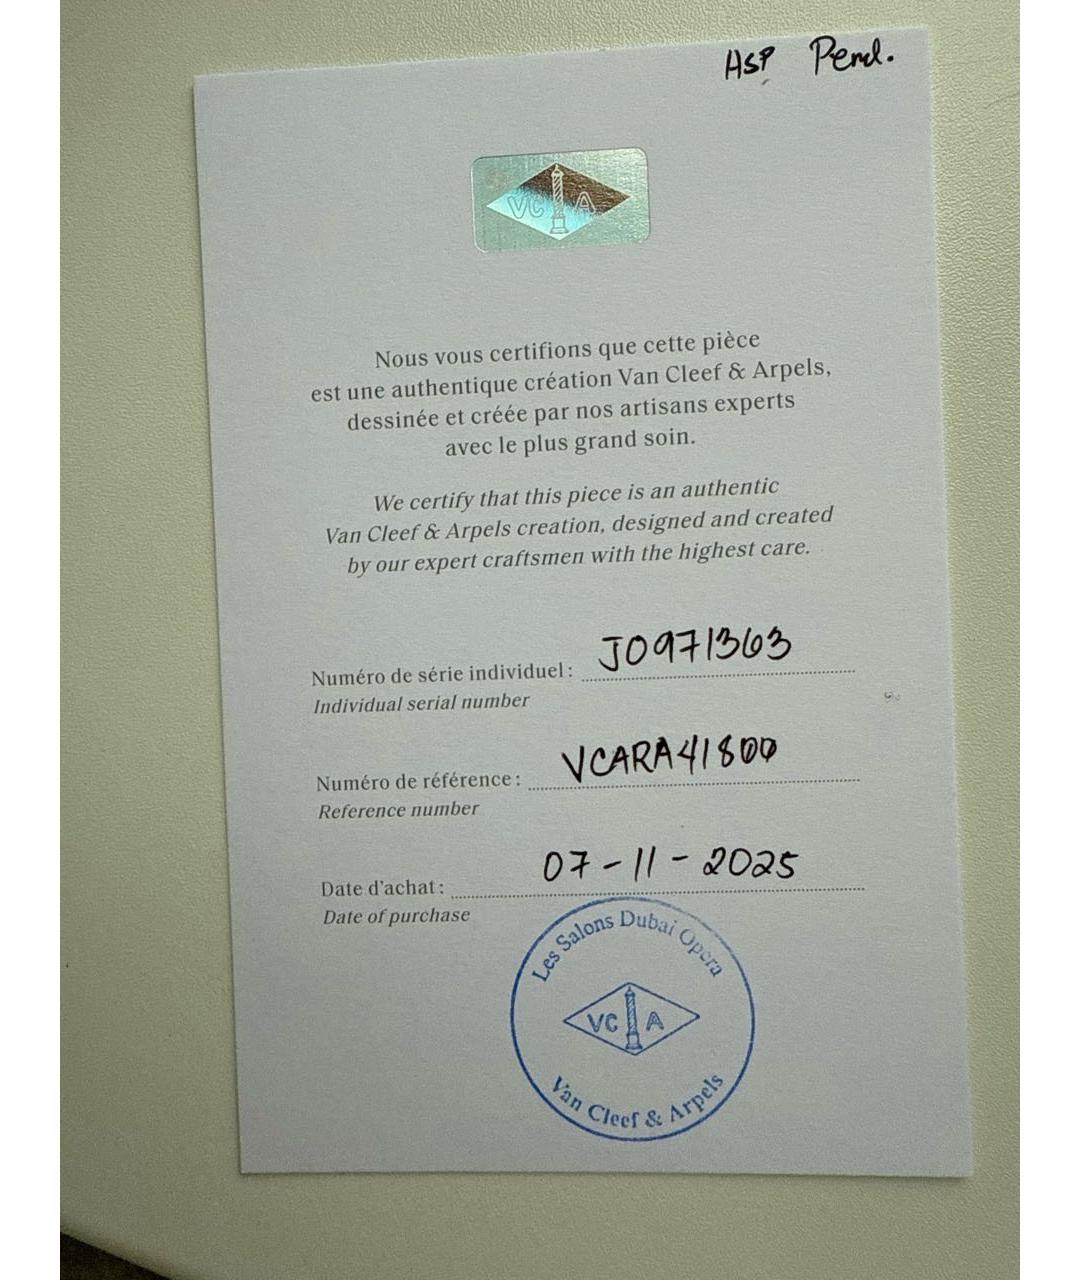 HSP Pend.
VCA
Nous vous certifions que cette pièce
est une authentique création Van Cleef & Arpels,
dessinée et créée par nos artisans experts
avec le plus grand soin.
We certify that this piece is an authentic
Van Cleef & Arpels creation, designed and created
by our expert craftsmen with the highest care.
Numéro de série individuel : JO971363
Individual serial number
Numéro de référence : VCARA41800
Reference number
Date d'achat : 07-11-2025
Date of purchase
Les Salons Dubai Opera
VC A
Van Cleef & Arpels